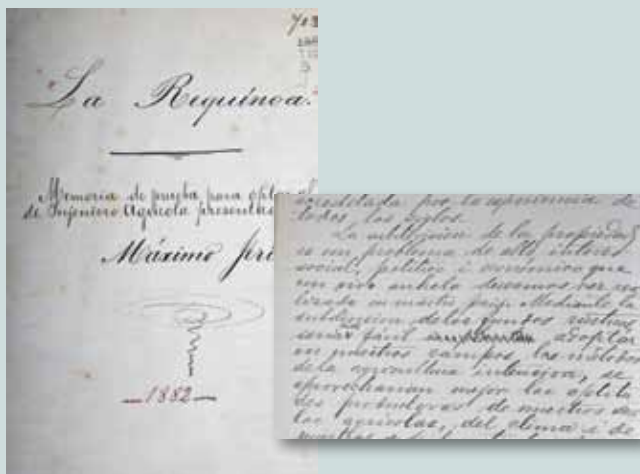 La Requínoa.
Memoria de prueba para optar al
de Injeniero Agrícola presenta
Máximo
1882
acreditada por la esperiencia de
todos los siglos.
La subdivision de la propiedad
es un problema de alto interes
social, político i económico que
con vivo anhelo deseamos ver rea
lizado en nuestro pais. Mediante la
subdivision de los fundos rústicos
seria fácil adoptar
en nuestros campos, los métodos
de la agricultura intensiva, se
aprovecharian mejor las aptitu
des productoras de nuestros sue
los agrícolas, del clima i de